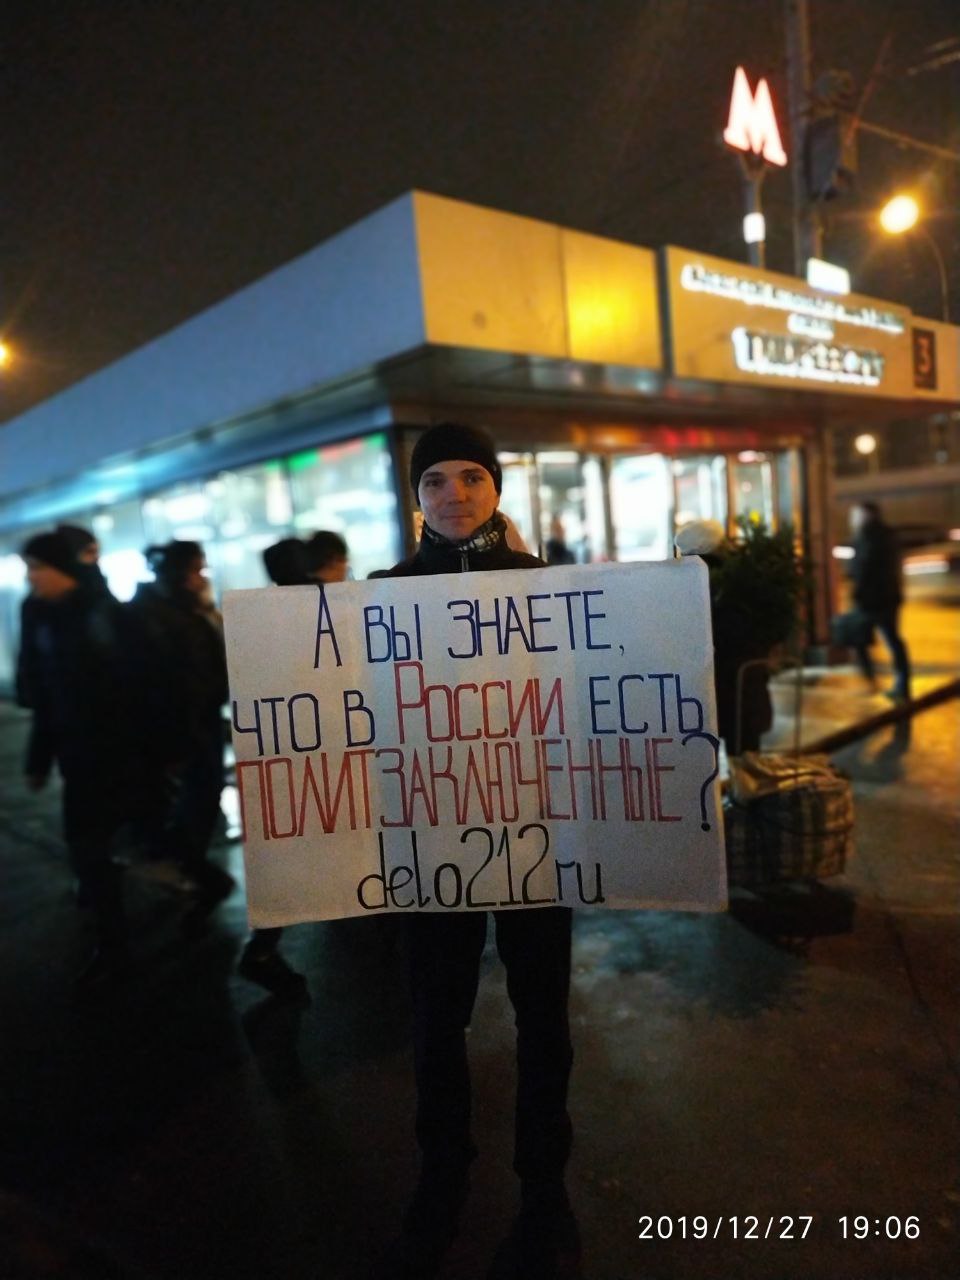 М
3
А ВЫ ЗНАЕТЕ,
ЧТО В РОССИИ ЕСТЬ
ПОЛИТЗАКЛЮЧЕННЫЕ?
delo212.ru
2019/12/27 19:06